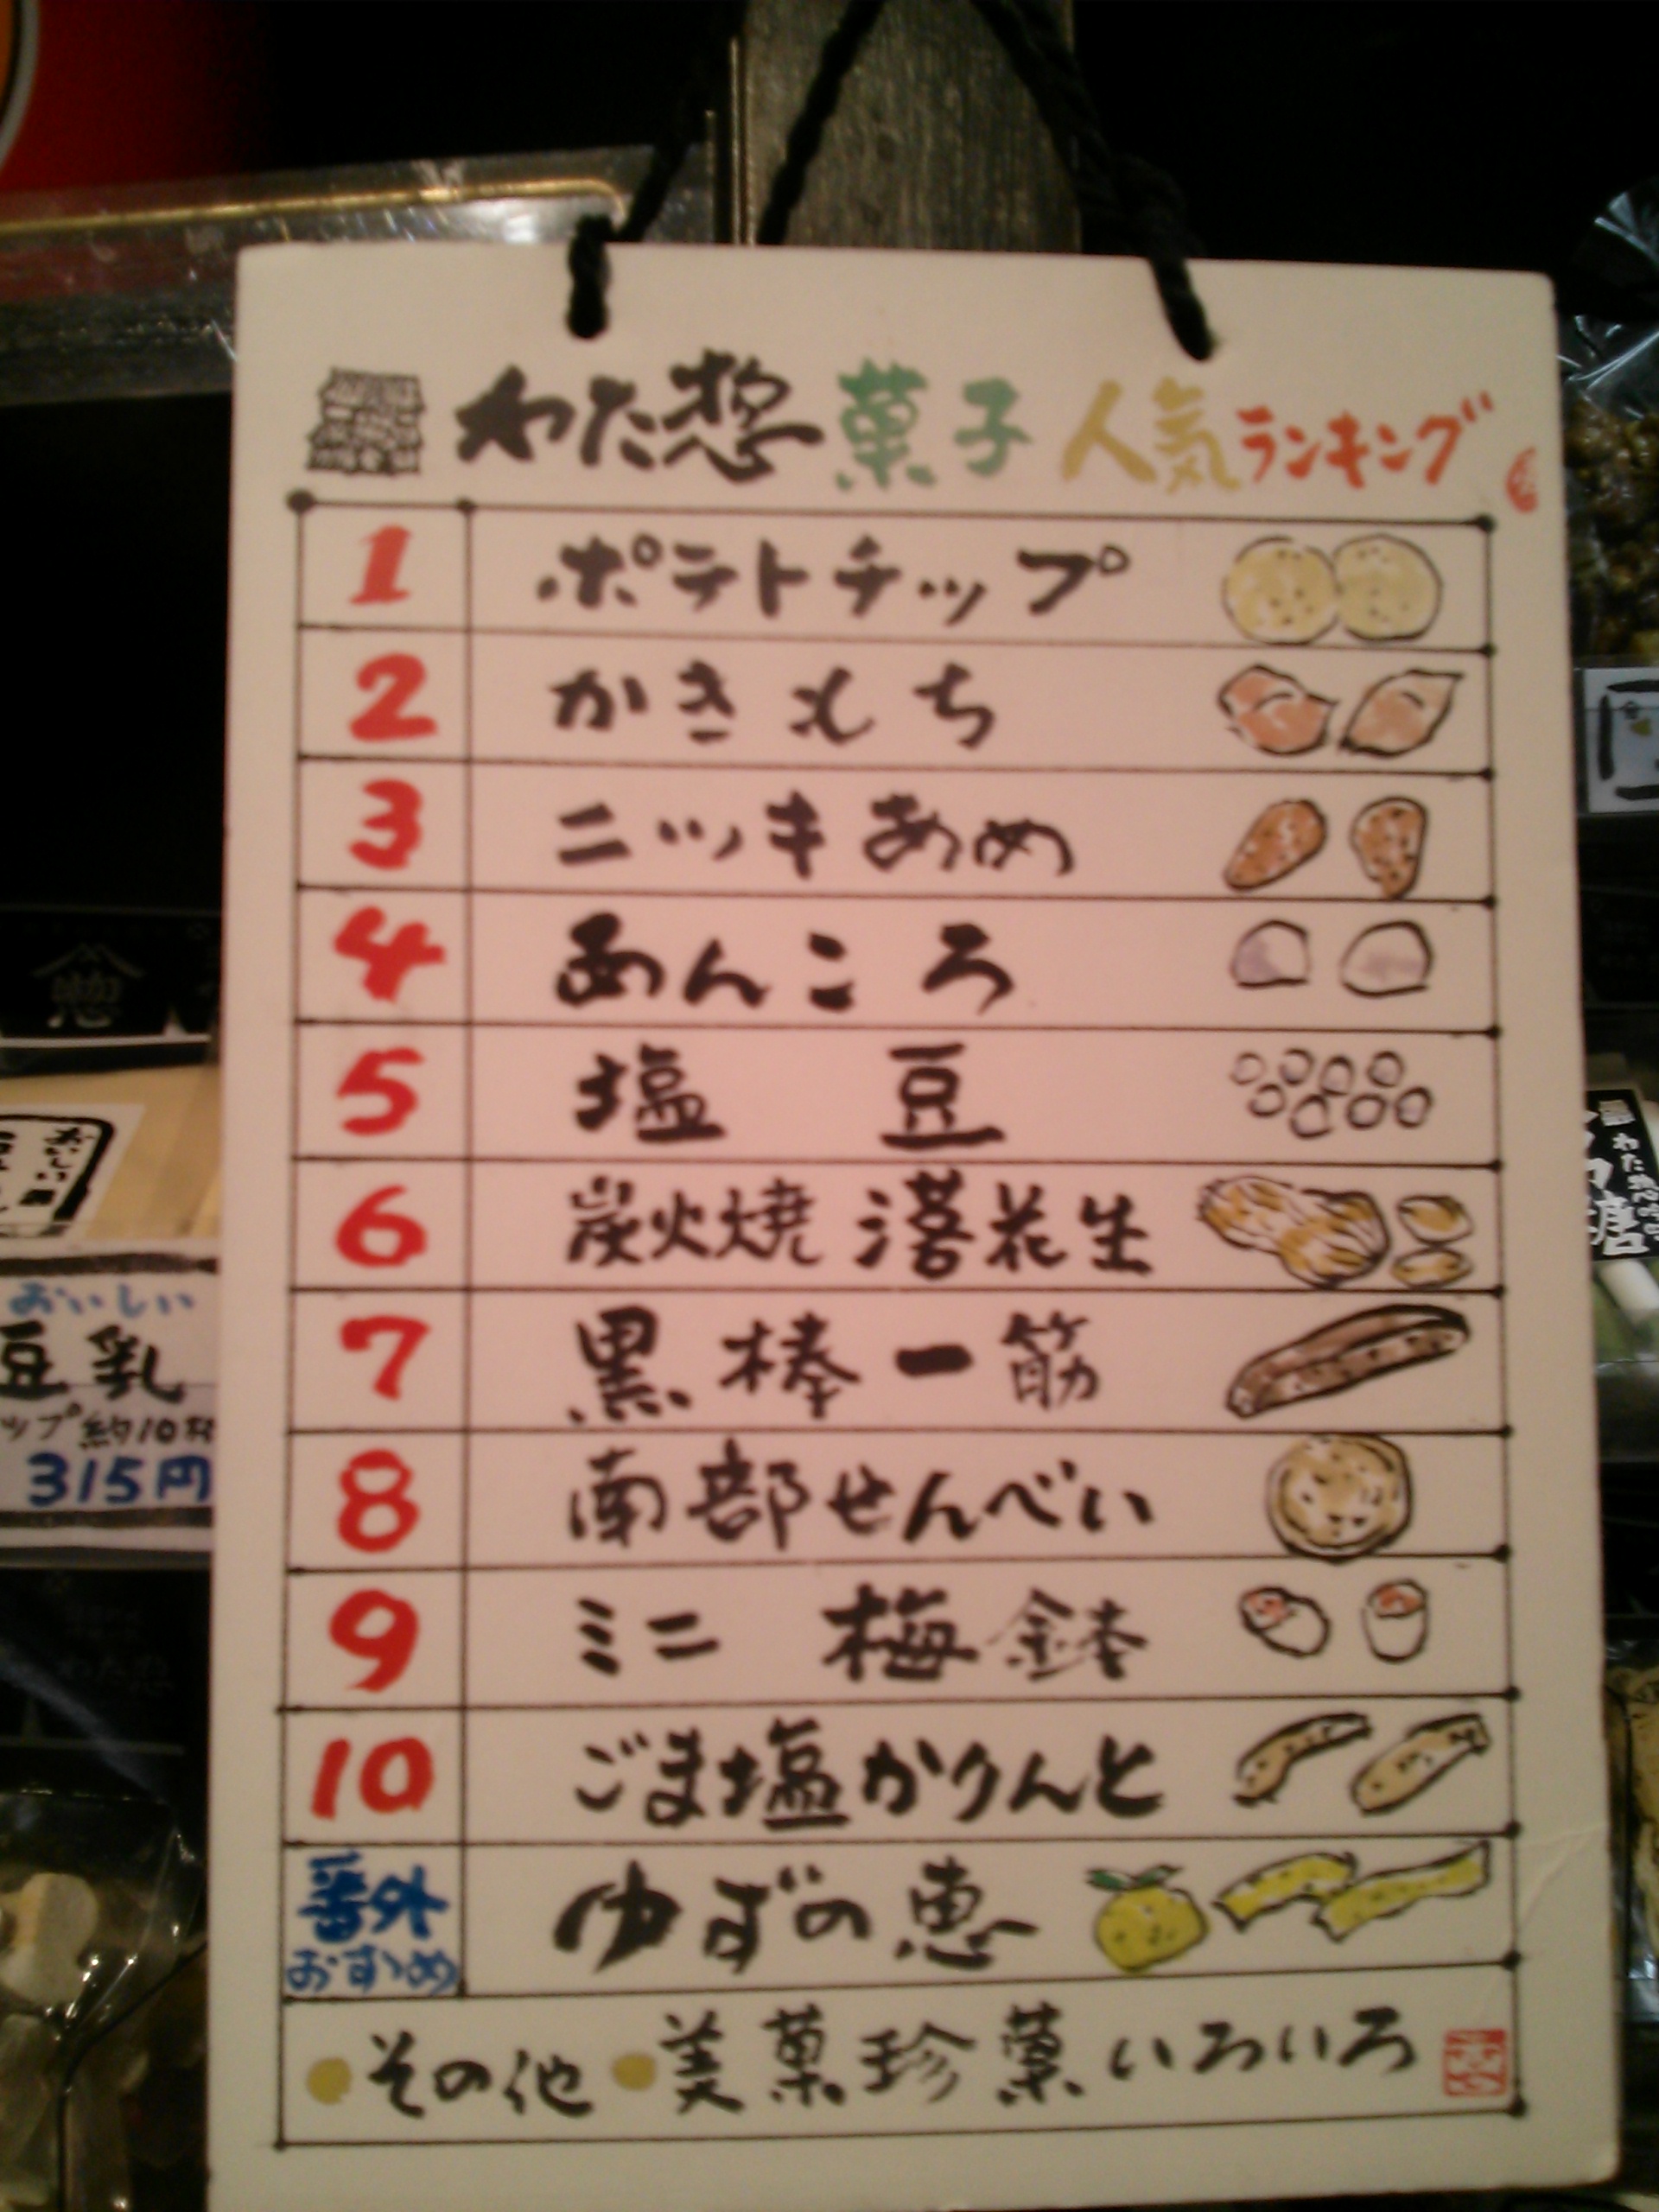 わた惣菓子人気ランキング
1 ポテトチップ
2 かきもち
3 ニッキあめ
4 あんころ
5 塩豆
6 炭火焼落花生
7 黒棒一筋
8 南部せんべい
9 ミニ梅鉢
10 ごま塩かりんと
番外おすすめ ゆずの恵
●その他●美菓珍菓いろいろ
惣
おいしい
おいしい
豆乳
ップ約10杯
315円
わた惣
糖